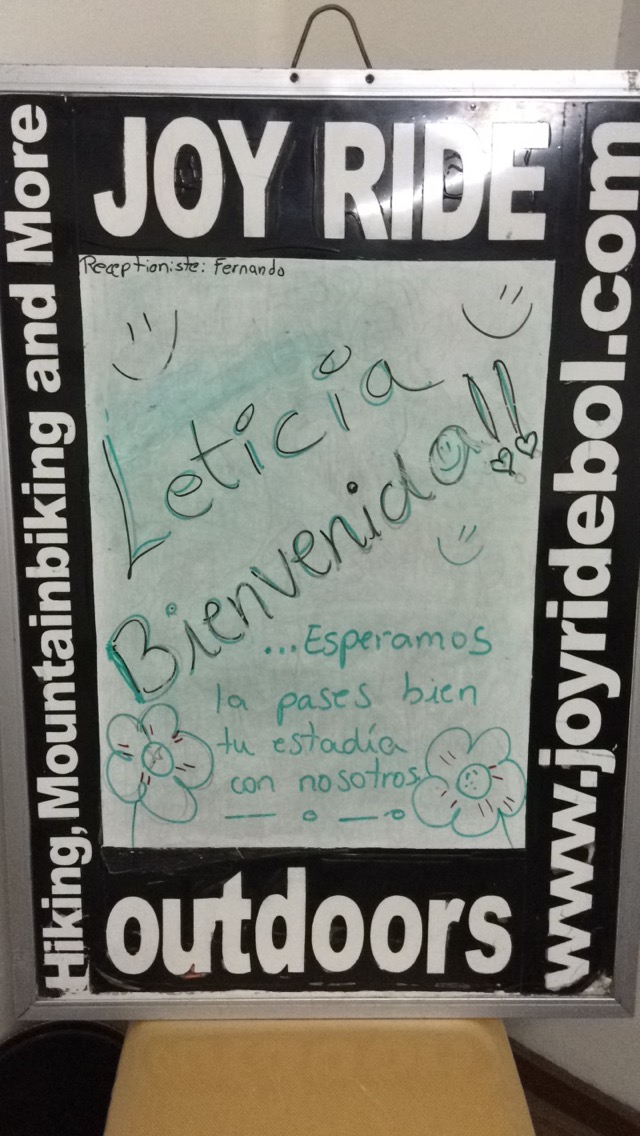 JOY RIDE
Hiking, Mountainbiking and More
Receptioniste: Fernando
Leticia
Bienvenida!!
...Esperamos
la pases bien
tu estadía
con nosotros
outdoors
www.joyridebol.com